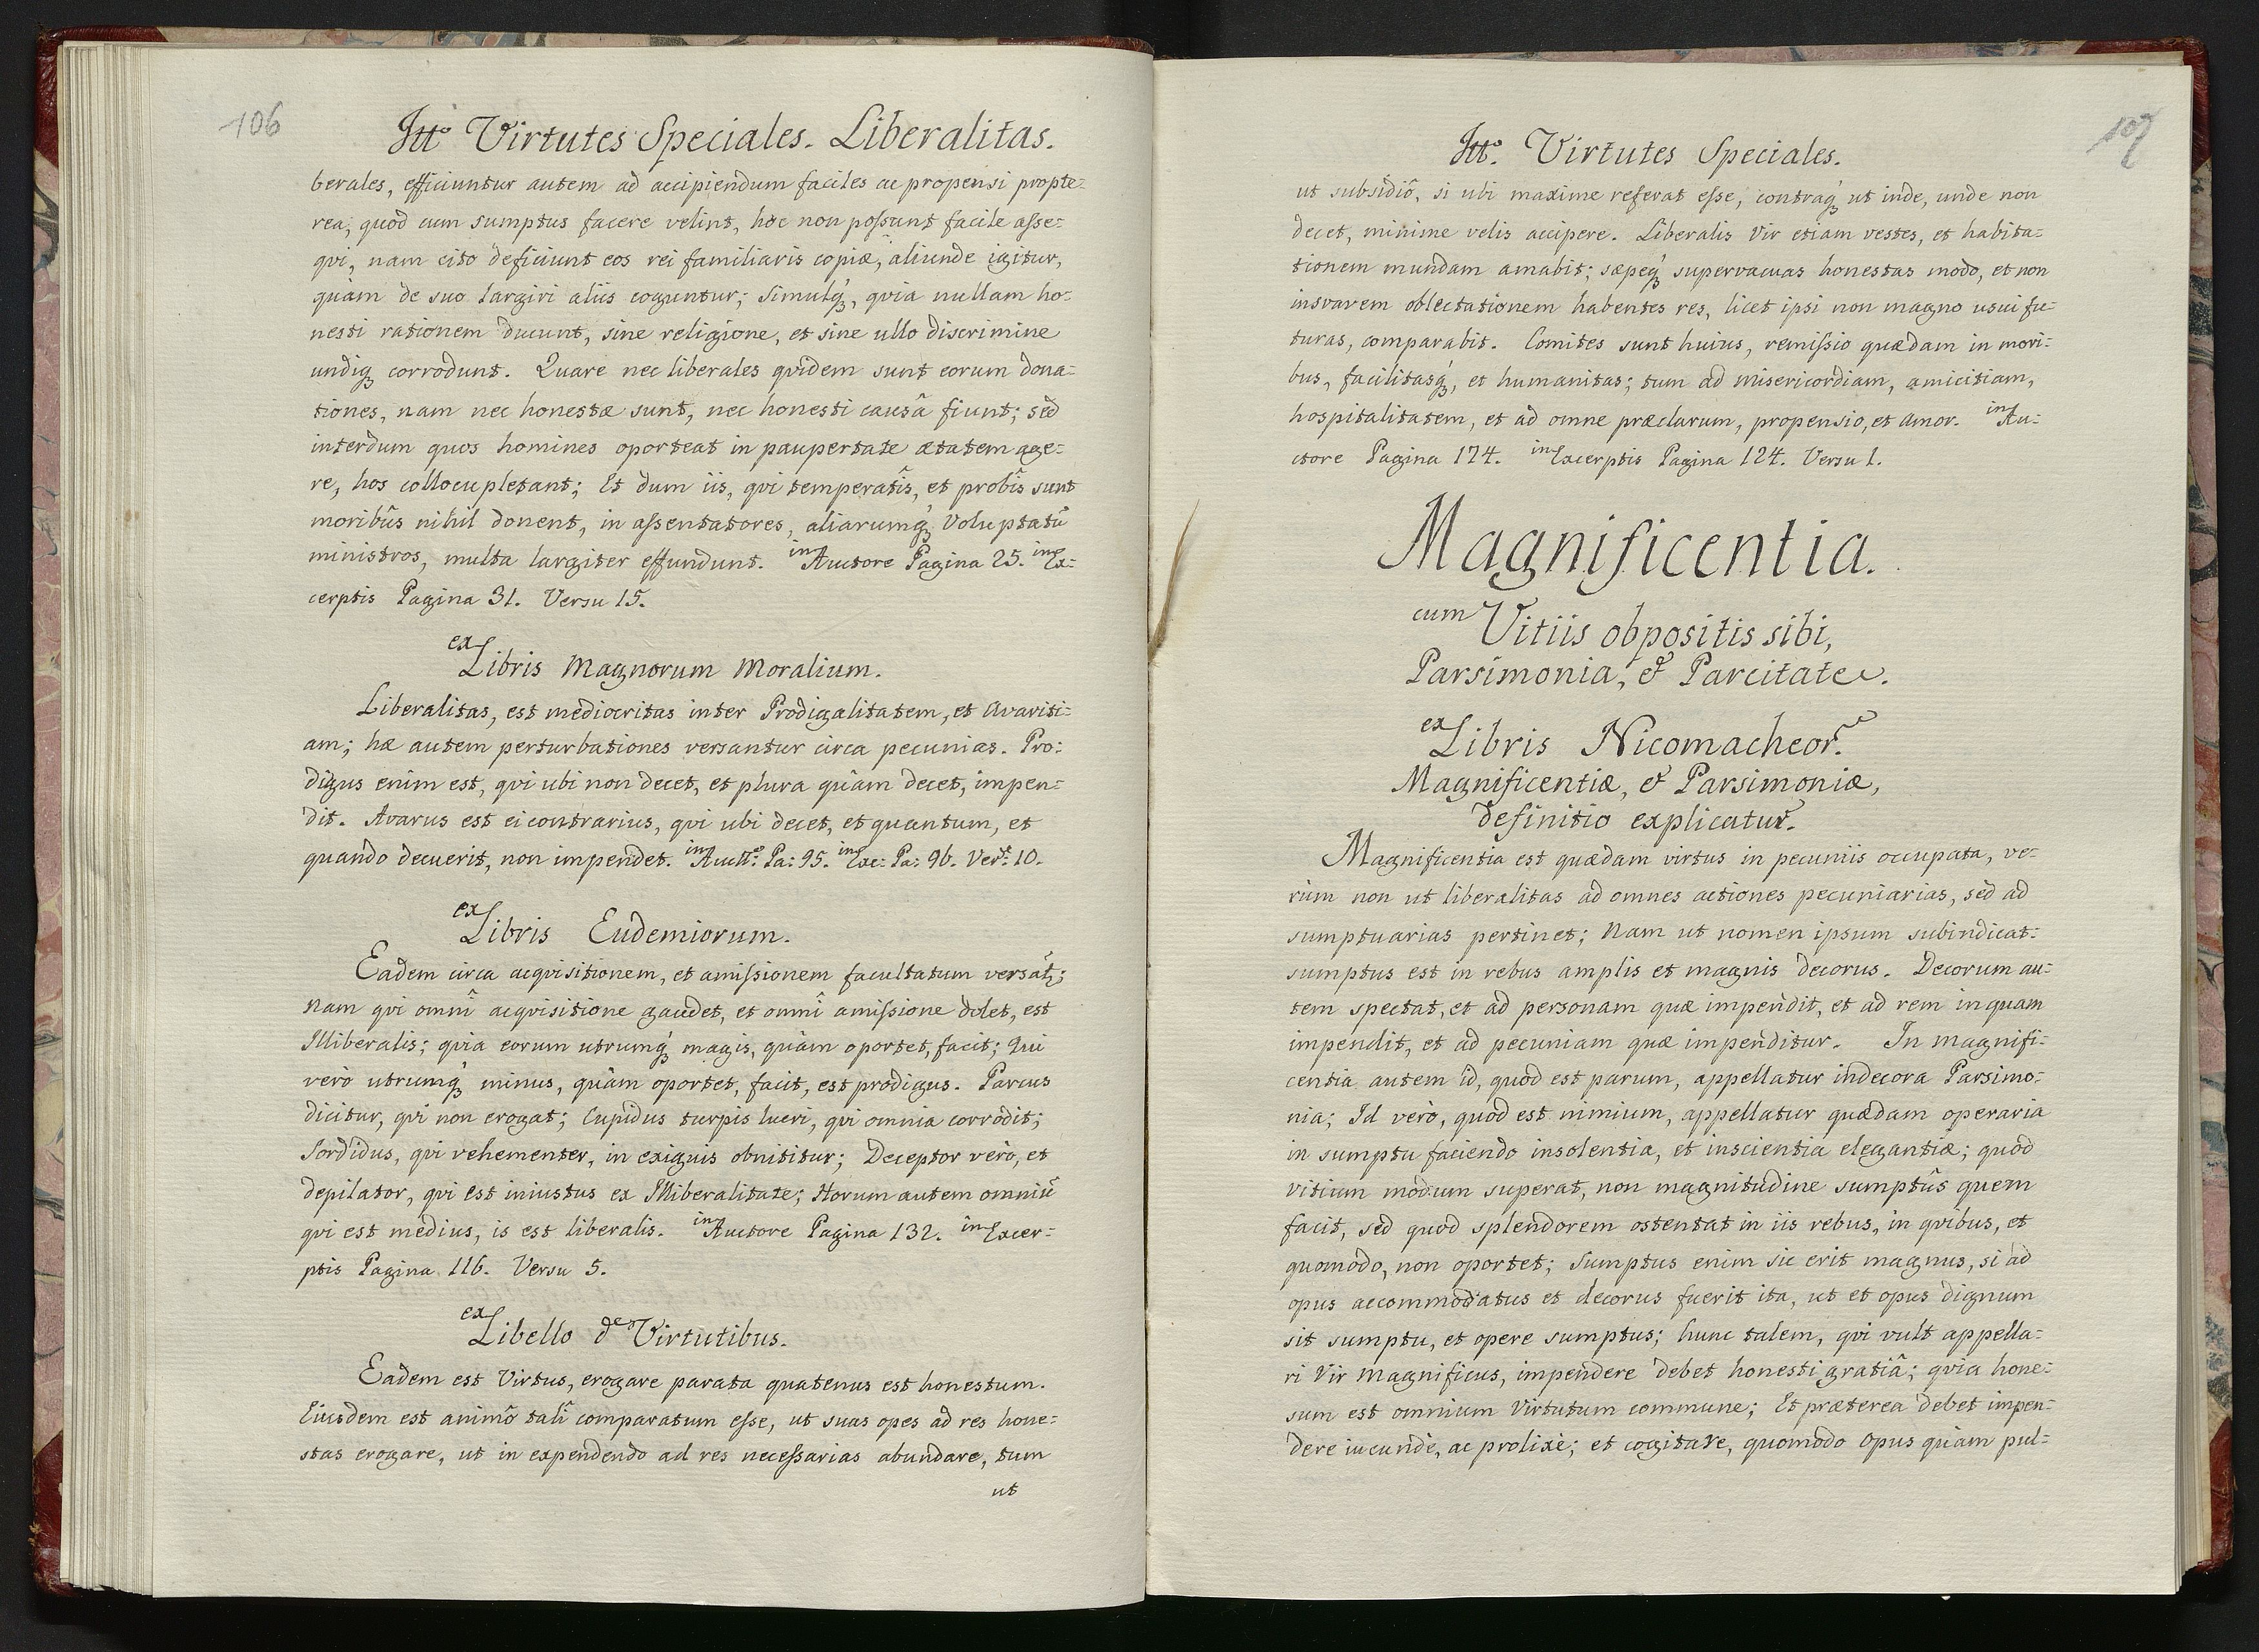 106
Itt.º Virtutes Speciales. Liberalitas.
berales, efficiuntur autem ad accipiendum faciles ac propensi propte=
rea, quòd cum sumptus facere velint, hoc non poſsunt facile aſse=
qui, nam cito deficiunt eos rei familiaris copiæ, aliunde igitur,
quàm de suo largiri aliis coguntur; Simulq́ꝫ, qvia nullam ho=
nesti rationem ducunt, sine religione, et sine ullo discrimine
undiqꝫ corrodunt. Quare nec liberales qvidem sunt eorum dona=
tiones, nam nec honestæ sunt, nec honesti causâ fiunt; sed
interdum quos homines oporteat in paupertate ætatem age=
re, hos collocupletant; Et dum iis, qvi temperatîs, et probîs sunt
moribûs nihil donent, in aſsentatores, aliarumq́ꝫ Voluptatū
ministros, multa largiter effundunt. in Auctore Pagina 25. in Ex=
cerptis Pagina 31. Versu 15.
ex Libris Magnorum Moralium.
Liberalitas, est mediocritas inter Prodigalitatem, et Avariti=
am; hæ autem perturbationes versantur circa pecunias. Pro=
digus enim est, qvi ubi non decet, et plura quàm decet, impen=
dit. Avarus est ei contrarius, qvi ubi decet, et quantum, et
quando decuerit, non impendet. in Auctᵉ: Pa: 95. in Exc: Pa: 96. Verˢ: 10.
ex Libris Eudemiorum.
Eadem circa acqvisitionem, et amiſsionem facultatum versāt̃;
Nam qvi omnî acqvisitione gaudet, et omnî amiſsione dolet, est
Illiberalis; qvia eorum utrumq́ꝫ magis, quàm oportet, facit; Qui
verò utrumq́ꝫ minus, quàm oportet, facit, est prodigus. Parcus
dicitur, qvi non erogat; Cupidus turpis lucri, qvi omnia corrodit;
Sordidus, qvi vehementer, in exiguis obnititur; Deceptor verò, et
depilator, qvi est iniustus ex Illiberalitate; Horum autem omniū
qvi est medius, is est liberalis. in Auctore Pagina 132. in Excer=
ptis Pagina 116. Versu 5.
ex Libello de Virtutibus.
Eadem est Virtus, erogare parata quatenus est honestum.
Eiusdem est animô talî comparatum eſse, ut suas opes ad res hone=
stas erogare, ut in expendendo ad res neceſsarias abundare, tum
ut
107
Itt.º Virtutes Speciales.
ut subsidiô, si ubi maxime referat eſse, contraq́ꝫ ut inde, unde non
decet, minime velis accipere. Liberalis Vir etiam vestes, et habita=
tionem mundam amabit; sæpeq́ꝫ supervacuas honestas modo, et non
insvavem oblectationem habentes res, licet ipsi non magno usui fu=
turas, comparabit. Comites sunt huius, remiſsio quædam in mori=
bus, facilitasq́ꝫ, et humanitas; tum ad misericordiam, amicitiam,
hospitalitatem, et ad omne præclarum, propensio, et Amor. in Au=
ctore Pagina 174. in Excerptis Pagina 124. Versu 1.
Magnificentia.
cum Vitiis obpositis sibi,
Parsimonia, & Parcitate.
ex Libris Nicomacheor̃.
Magnificentiæ, & Parsimoniæ,
definitio explicatur.
Magnificentia est quædam virtus in pecuniis occupata, ve=
rùm non ut liberalitas ad omnes actiones pecuniarias, sed ad
sumptuarias pertinet; Nam ut nomen ipsum subindicat=
sumptus est in rebus amplis et magnis decorus. Decorum au=
tem spectat, et ad personam quæ impendit, et ad rem in quam
impendit, et ad pecuniam quæ impenditur. In magnifi=
centia autem id, quod est parum, appellatur indecora Parsimo=
nia; Id verò, quod est nimium, appellatur quædam operaria
in sumptu faciendo insolentia, et inscientia elegantiæ; quod
vitium modum superat, non magnitudine sumptûs quem
facit, sed quod splendorem ostentat in iis rebus, in qvibus, et
quomodo, non oportet; Sumptus enim sic erit magnus, si ad
opus accommodatus et decorus fuerit ita, ut et opus dignum
sit sumptu, et opere sumptus; hunc talem, qvi vult appella=
ri Vir magnificus, impendere debet honesti gratiâ; qvia hone=
sum est omnium Virtutum commune; Et præterea debet impen=
dere iucundè, ac prolixè; et cogitare, quomodo Opus quàm pul=